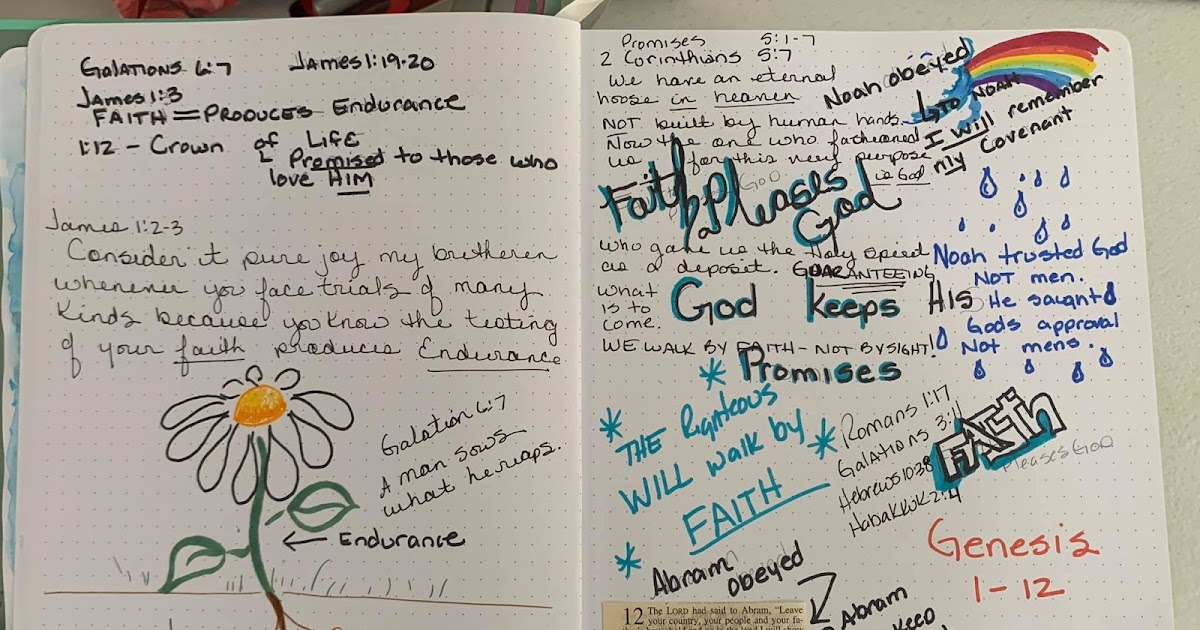 Galations 6:7 James 1:19-20
James 1:3
FAITH = PRODUCES Endurance
1:12 - Crown of Life
Promised to those who
love HIM
James 1:2-3
Consider it pure joy my bretheren
whenever you face trials of many
kinds because you know the testing
of your faith produces Endurance
Galation 6:7
A man sows
what he reaps.
Endurance
Promises 5:1-7
2 Corinthians 5:7
We have an eternal
house in heaven
NOT built by human hands.
Now the one who fashioned
us for this very purpose
is God
Noah obeyed
TO NOAH
I Will remember
my Covenant
Faith pleases
God
who gave us the Holy Spirit
as a deposit. GUARANTEEING
what
is to
come.
God keeps His
Promises
WE WALK BY FAITH - NOT BY SIGHT!
Noah trusted God
NOT men.
He saught
Gods approval
Not mens.
THE Righteous
WILL walk by
FAITH
Romans 1:17
Galations 3:11
Hebrews 10:38
Habakkuk 2:4
FAITH
Pleases God
Genesis
1-12
Abram
obeyed
Abram
12 The LORD had said to Abram, "Leave
your country, your people and your fa-